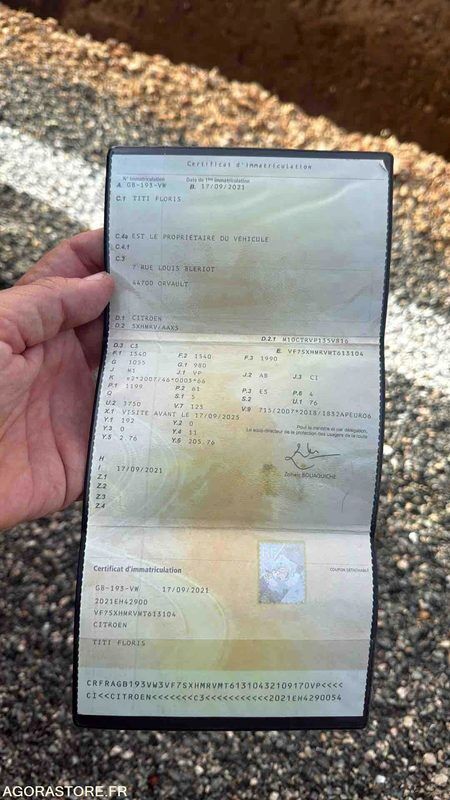 Certificat d'immatriculation
N° immatriculation Date de 1ère immatriculation
A. GB-193-VW B. 17/09/2021
C.1 TITI FLORIS
C.4a EST LE PROPRIÉTAIRE DU VÉHICULE
C.4.1
C.3
7 RUE LOUIS BLERIOT
44700 ORVAULT
D.1 CITROEN
D.2 SXHMRV/AAXS D.2.1 M10CTRVP135V816
D.3 C3 E. VF7SXHMRVMT613104
F.1 1540 F.2 1540 F.3 1990
G 1055 G.1 980
J. M1 J.1 VP J.2 AB J.3 CI
K. e2*2007/46*0003*66
P.1 1199 P.2 61 P.3 ES P.6 4
Q S.1 5 S.2 U.1 76
U.2 3750 V.7 123 V.9 715/2007*2018/1832APEURO6
X.1 VISITE AVANT LE 17/09/2025
Y.1 192 Y.2 0
Y.3 0 Y.4 11
Y.5 2.76 Y.6 205.76
Pour le ministre et par délégation,
Le sous-directeur de la protection des usagers de la route
H
I 17/09/2021
Z.1
Z.2
Z.3
Z.4
Certificat d'immatriculation COUPON DÉTACHABLE
GB-193-VW 17/09/2021
2021EH42900
VF7SXHMRVMT613104
CITROEN
TITI FLORIS
CRFRAGB193VW3VF7SXHMRVMT61310432109170VP<<<<
CI<<CITROEN<<<<<<<C3<<<<<<<<<<<2021EH4290054
AGORASTORE.FR